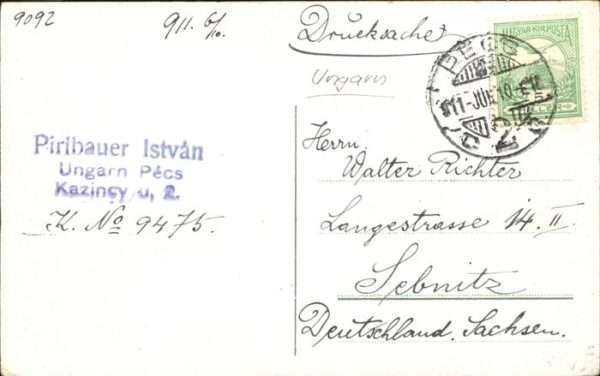 9092
911. 6/10.
Drucksache
Ungarn
MAGYAR KIR. POSTA
PÉCS
911 JUN. 10
Piribauer István
Ungarn Pécs
Kazinçy u, 2.
K. No 9475.
Herrn
Walter Richter
Langestrasse 14. II
Sebnitz
Deutschland. Sachsen.